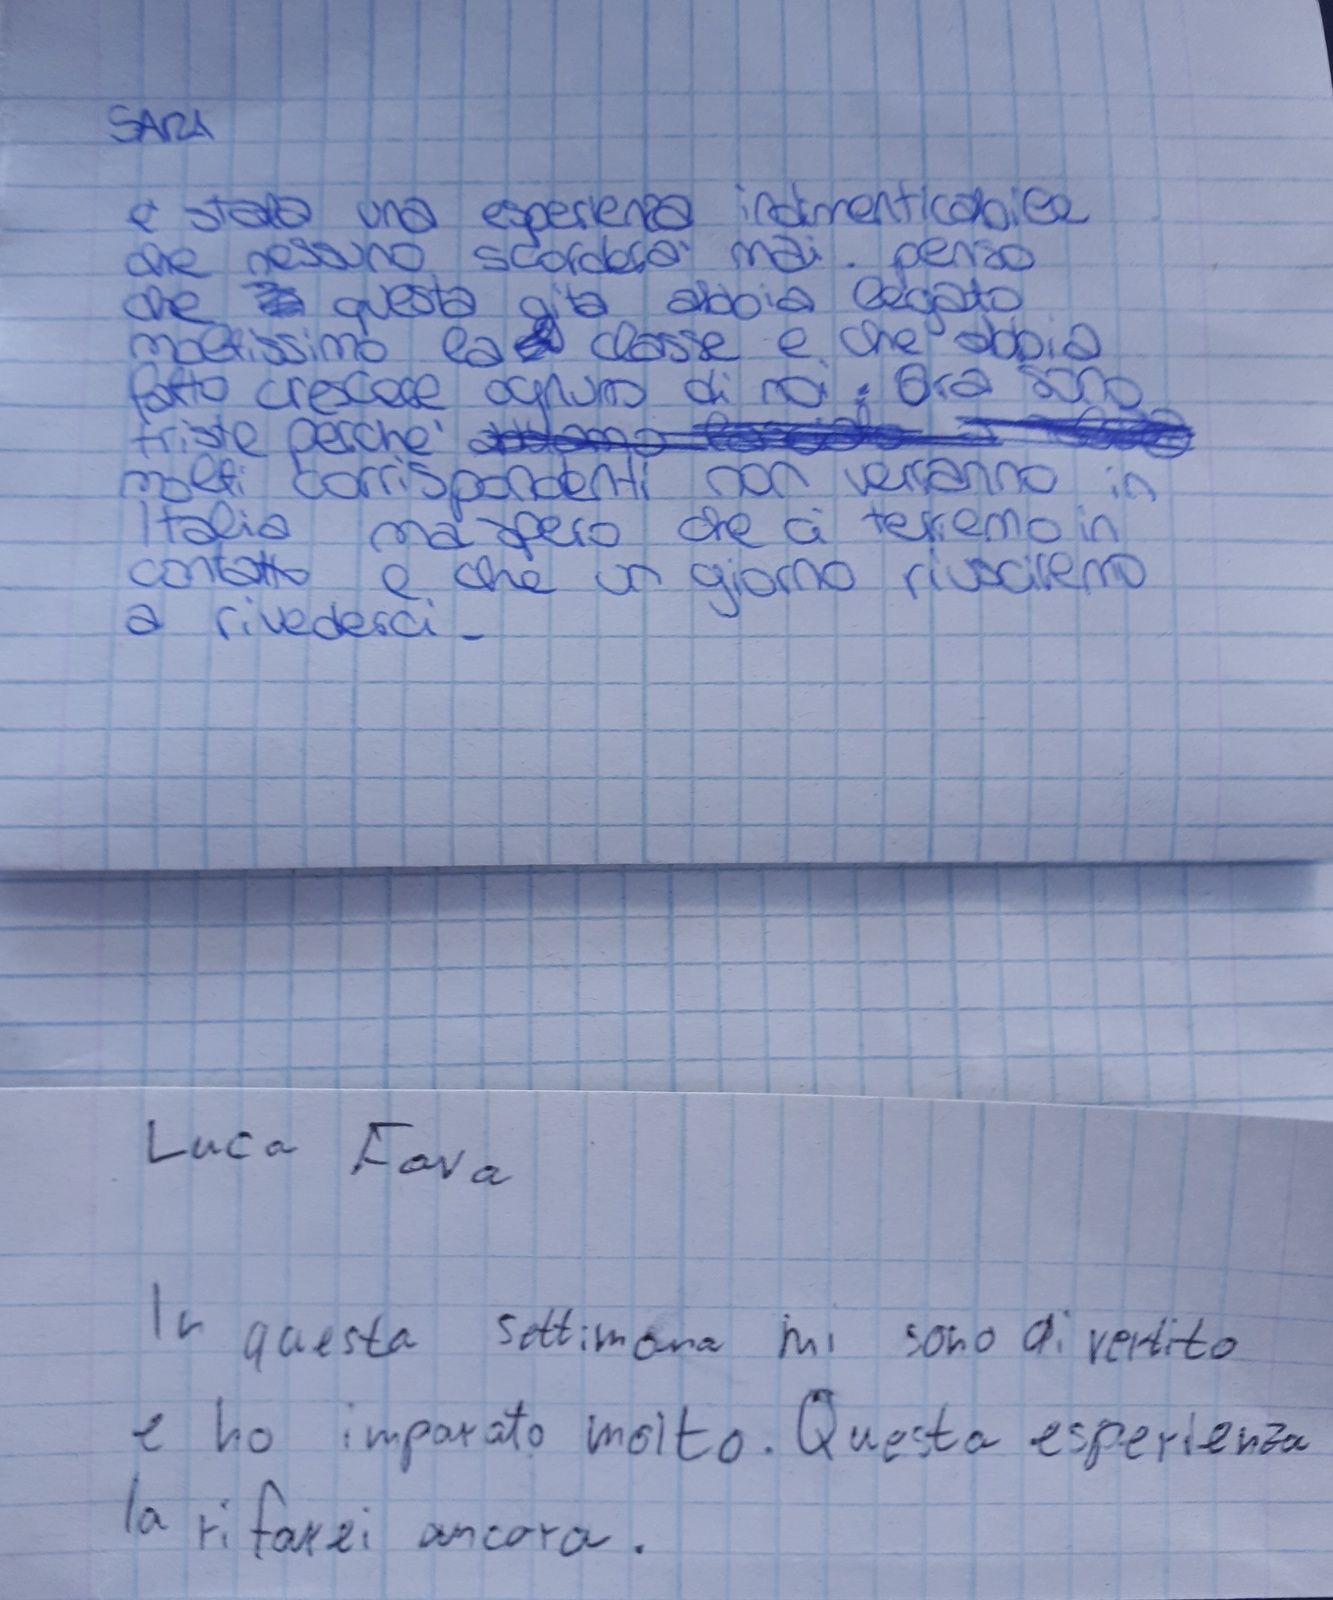 SARA
è stata una esperienza indimenticabile
che nessuno scorderà mai. penso
che questa gita abbia legato
moltissimo la classe e che abbia
fatto crescere ognuno di noi. Ora sono
triste perché
molti corrispondenti non verranno in
Italia ma spero che ci terremo in
contatto e che un giorno riusciremo
a rivederci.
Luca Fava
In questa settimana mi sono divertito
e ho imparato molto. Questa esperienza
la rifarei ancora.